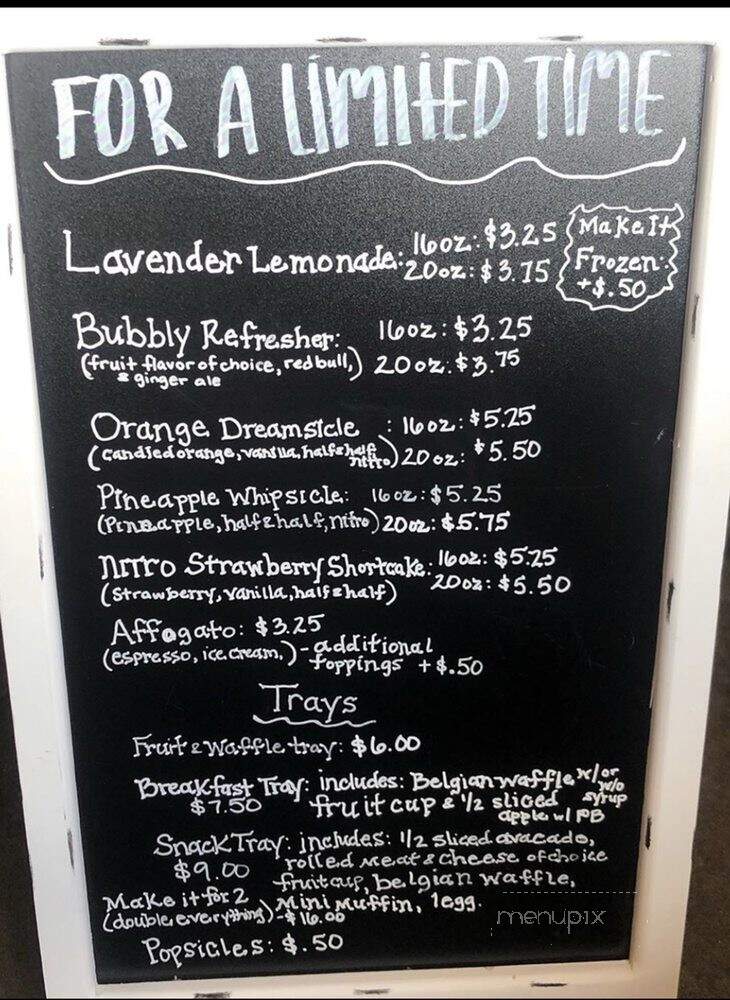 FOR A LIMITED TIME
Lavender Lemonade: 16oz: $3.25
20oz: $3.75
Make It
Frozen:
+$.50
Bubbly Refresher: 16oz: $3.25
(fruit flavor of choice, redbull, 20oz: $3.75
& ginger ale)
Orange Dreamsicle : 16oz: $5.25
(candied orange, vanilla, half & half, nitro) 20oz: $5.50
Pineapple Whipsicle: 16oz: $5.25
(Pineapple, half & half, nitro) 20oz: $5.75
Nitro Strawberry Shortcake: 16oz: $5.25
(Strawberry, vanilla, half & half) 20oz: $5.50
Affogato: $3.25
(espresso, ice cream,) - additional
toppings +$.50
Trays
Fruit & Waffle tray: $6.00
Breakfast Tray: includes: Belgian waffle w/or w/o syrup
$7.50 fruit cup & 1/2 sliced
apple w/ PB
Snack Tray: includes: 1/2 sliced avacado,
$9.00 rolled meat & cheese of choice
fruit cup, belgian waffle,
Make it for 2 Mini Muffin, 1 egg.
(double everything) - $16.00
Popsicles: $.50
menupix